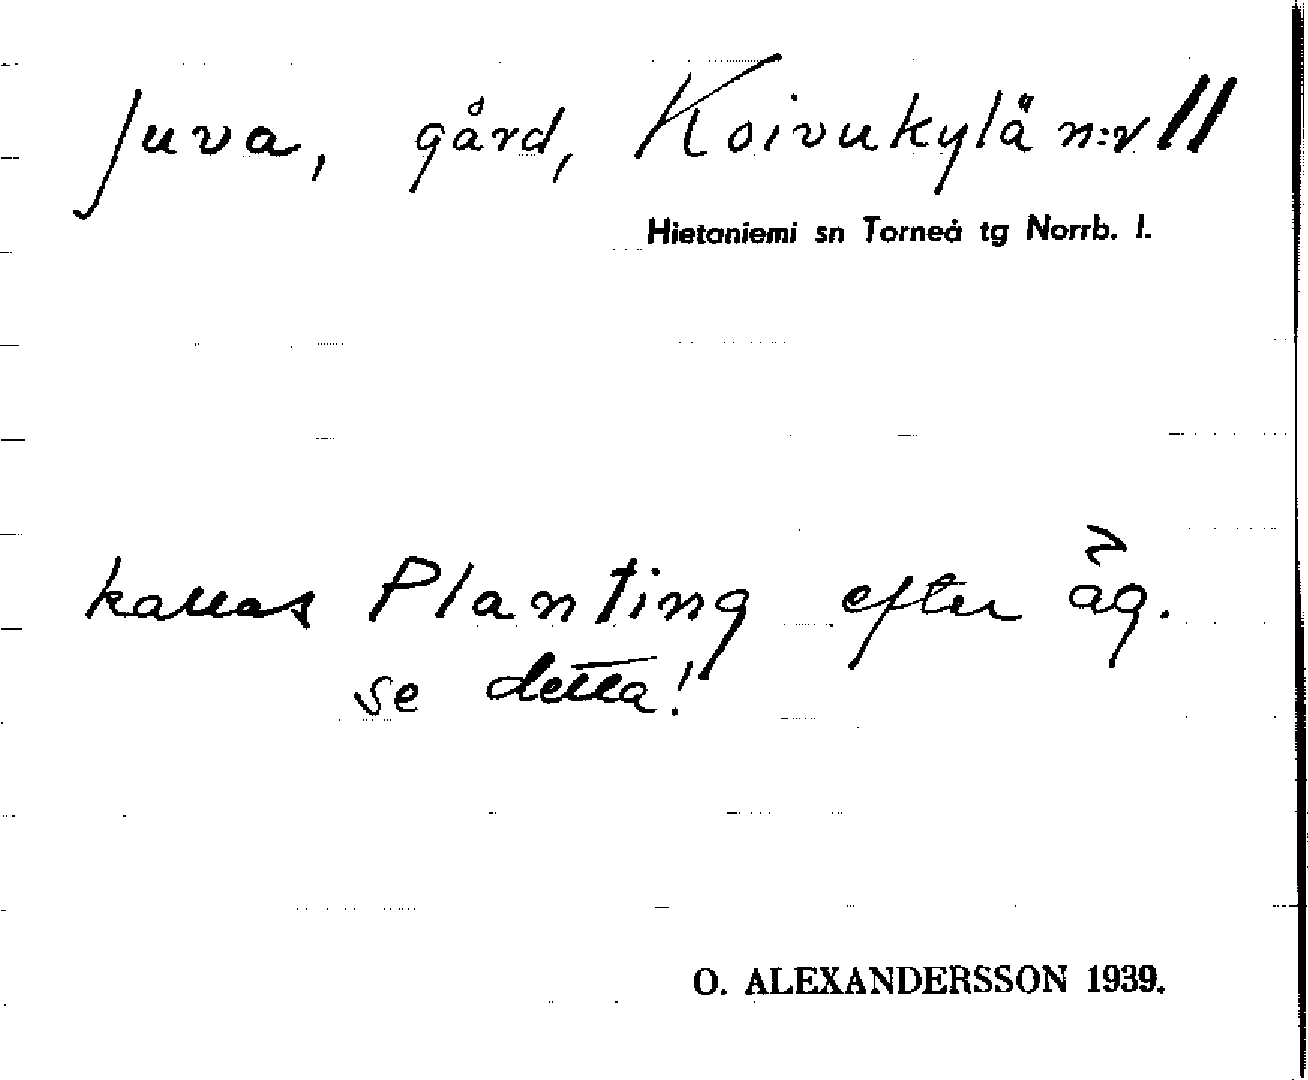 Juva, gård, Koivukylä n:r 11
Hietaniemi sn Torneå tg Norrb. l.
kallas Planting efter äg.
se detta!
O. ALEXANDERSSON 1939.